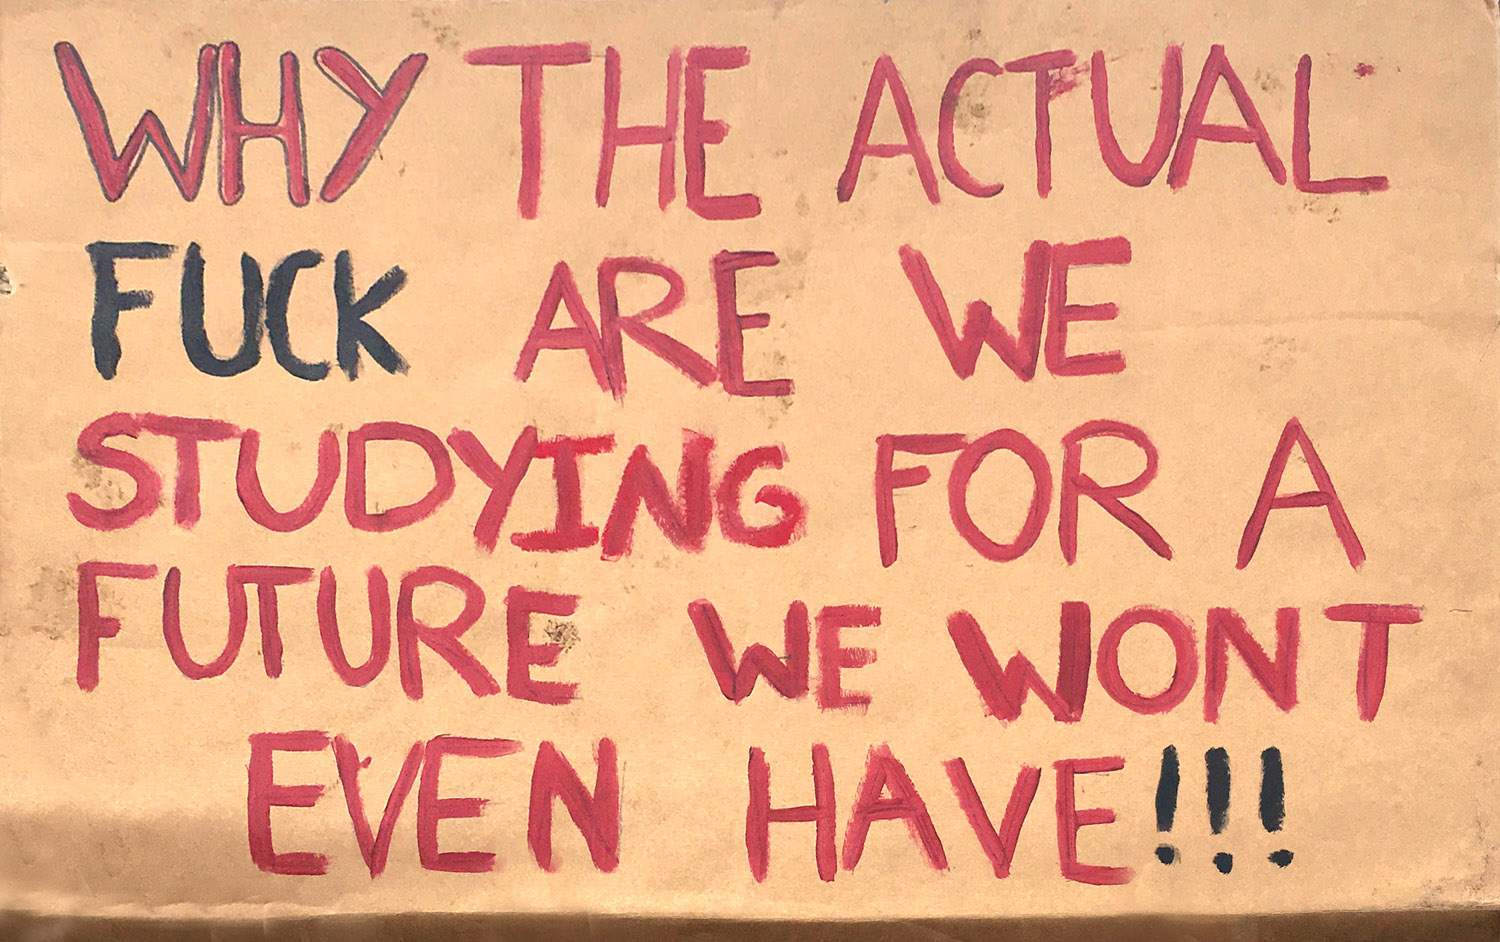 WHY THE ACTUAL
FUCK ARE WE
STUDYING FOR A
FUTURE WE WONT
EVEN HAVE!!!